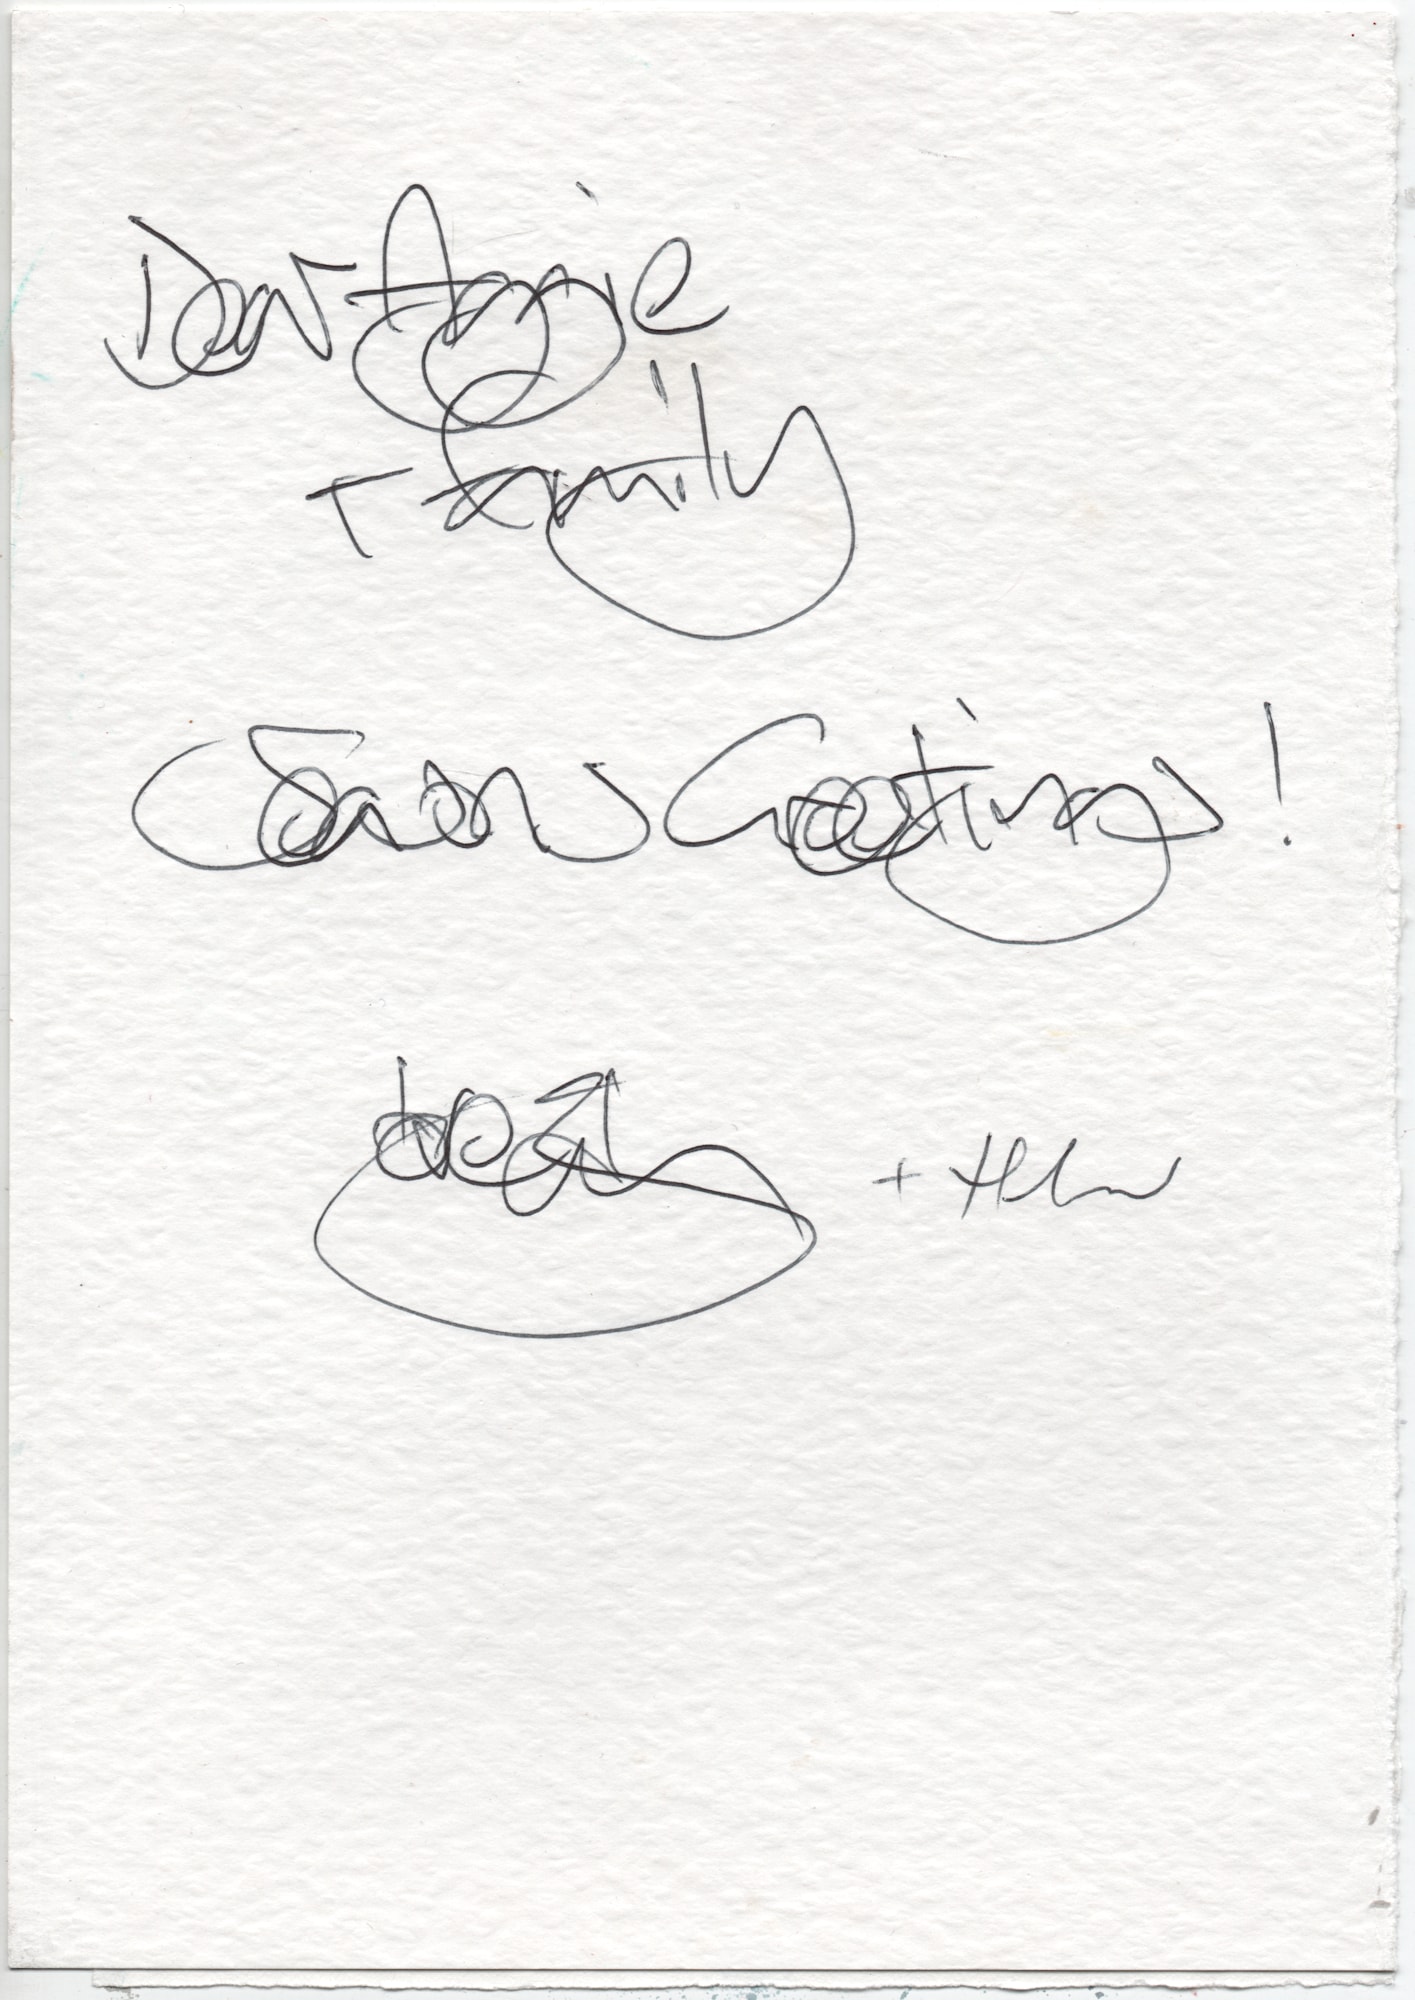 Dear Aggie
+ family
Seasons Greetings!
+